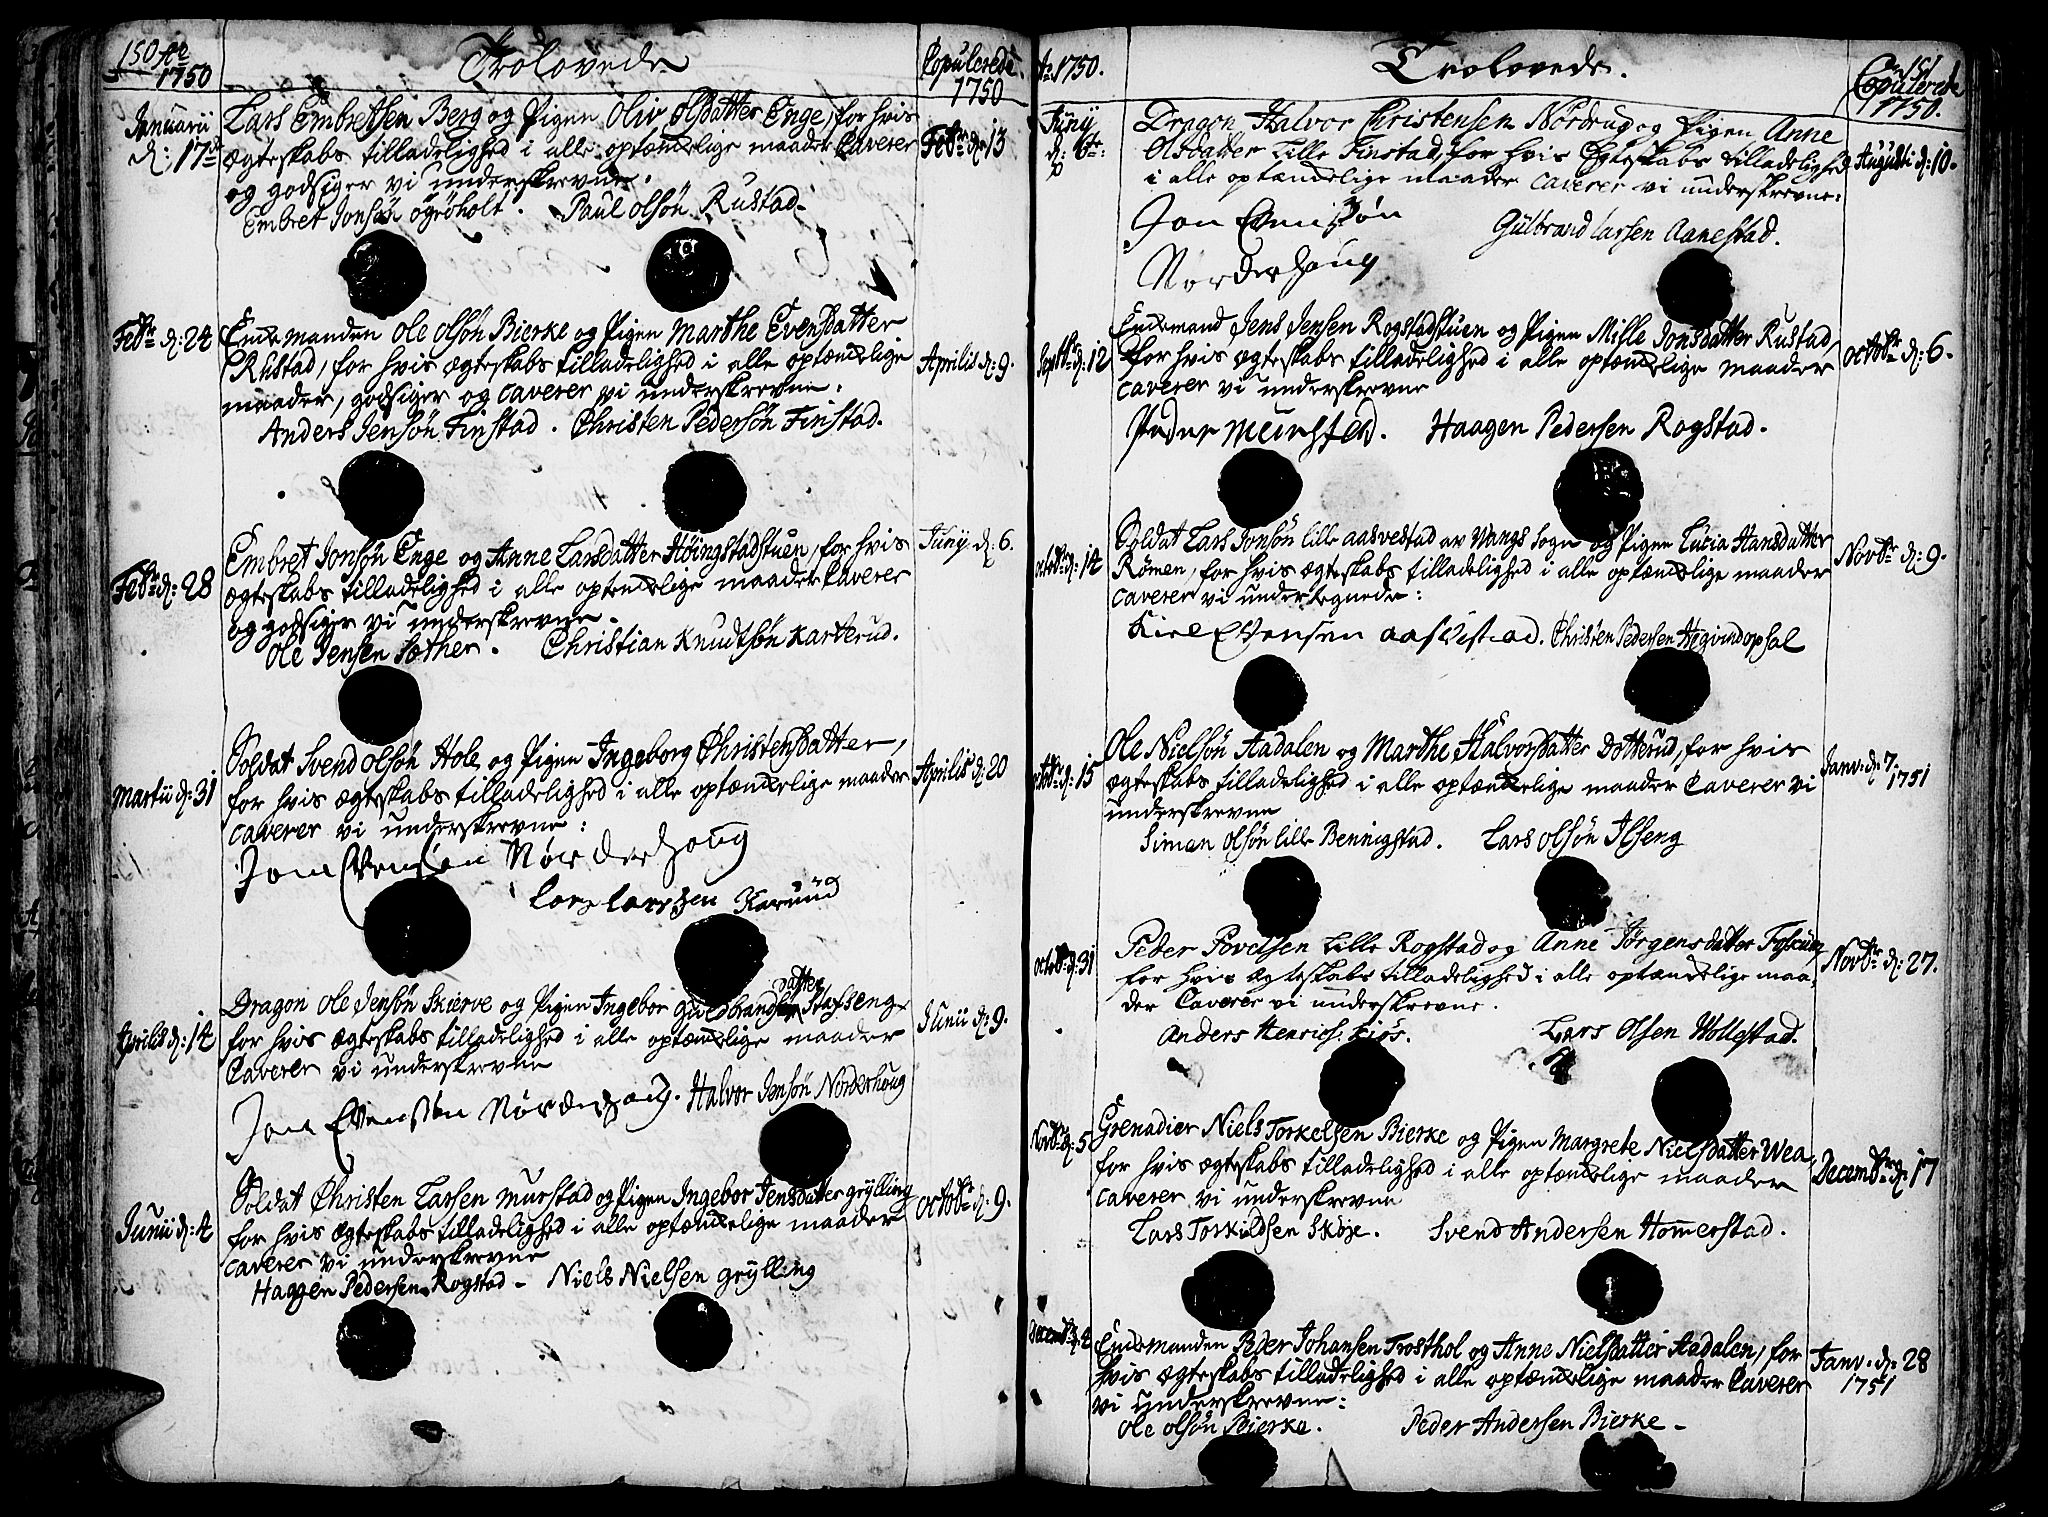 150 Aō
1750
Trolovede
Copulerede
1750
Januarii
d: 17de
Lars Embretsen Berg og Pigen Oliv Olsdatter Enge, for hvis
ægteskabs tilladelighed i alle optænkelige maader Caverer
og godsiger vi underskrevne.
Embret Jonsön Ögröholt. Paul Olsön Rustad.
Febr: d: 13
Febr: d: 24
Enckemanden Ole Olsön Bierke og Pigen Marthe Evensdatter
Rustad, for hvis ægteskabs tilladelighed i alle optænkelige
maader, godsiger og caverer vi underskrevne.
Anders Jensön Finstad. Christen Pedersön Finstad.
Aprilis d: 9.
Febr: d: 28
Embret Jonsön Enge og Anne Larsdatter Höingstadstuen, for hvis
ægteskabs tilladelighed i alle optænkelige maader Caverer
og godsiger vi underskrevne.
Ole Jensen Sæther. Christian Knudtsön Karterud.
Juny d: 6.
Martii d: 31
Soldat Svend Olsön Hole og Pigen Ingeborg Christensdatter,
for hvis ægteskabs tilladelighed i alle optænkelige maader
caverer vi underskrevne:
Jon Evensen Nörderhoug
Lars Larssen Karuud
Aprilis d: 20
Aprilis d: 14
Dragon Ole Jensön Skierve og Pigen Ingebor Guldbrandsdatter Stafseng
for hvis ægteskabs tilladelighed i alle optænkelige maader
Caverer vi underskrevne
Jon Evensön Nörderhoug. Halvor Jensön Norderhoug
Junii d: 9.
Junii d: 4
Soldat Christen Larsen Murstad og Pigen Ingebor Jensdatter Grylling
for hvis ægteskabs tilladelighed i alle optænkelige maader
caverer vi underskrevne
Haagen Pedersen Rogstad. Niels Nielsen Grylling
Octobr: d: 9.
Aō 1750.
Trolovede.
151
Copulerede
1750.
Juny
d: 6te:
Dragon Halvor Christensen Nordrug og Pigen Anne
Olsdatter Lille Finstad, for hvis Ægteskabs tilladelighed
i alle optændelige maader caverer vi underskrevne:
Jon Evensön Gulbrand Larsen Aanestad.
Nörderhoug
Augusti d: 10.
Septbr: d: 12
Enckemand Jens Jensen Rogstadstuen og Pigen Mille Jonsdatter Rustad,
for hvis ægteskabs tilladelighed i alle optænkelige maader
caverer vi underskrevne
Peder Murstad. Haagen Pedersen Rogstad.
Octobr: d: 6.
Octobr: d: 14
Soldat Lars Jonsön lille Aasvedstad av Wangs Sogn og Pigen Lucia Hansdatter
Römen, for hvis ægteskabs tilladelighed i alle optænkelige maader
caverer vi undertegnede:
Evensen Aasvistad. Christen Pedersen Hegvindopsal
Novbr: d: 9.
Octobr: d: 15
Ole Nielsön Aadalen og Marthe Halvorsdatter Dotterud, for hvis
ægteskabs tilladelighed i alle optænkelige maader Caverer vi
underskrevne
Siman Olsön lille Benningstad. Lars Olsön Ilseng
Janv: d: 7.
1751
Octob: d: 31
Peder Povelsen Lille Rogstad og Anne Jörgensdatter
for hvis Ægteskabs tilladelighed i alle optændelige maa-
der Caverer vi underskrevne.
Anders Henrichs: Kiös. Lars Olsen Wollestad.
Novbr: d: 27.
Novbr: d: 5
Grenadier Niels Torkelsen Bierke og Pigen Margrete Nielsdatter Wea,
for hvis ægteskabs tilladelighed i alle optænkelige maader
caverer vi underskrevne
Lars Torkildsen Sköje. Svend Andersen Hommerstad.
Decembr: d: 17
Decembr: d: 4
Enckemanden Peder Johansen Trosthol og Anne Nielsdatter Aadalen, for
hvis ægteskabs tilladelighed i alle optænkelige maader Caverer
vi underskrevne:
Ole Olsön Bierke. Peder Andersen Bierke.
Janv: d: 28
1751